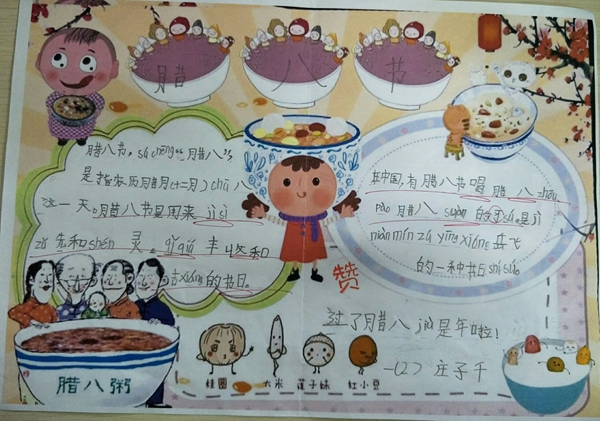 腊 八 节
腊八节, sú chēng “腊八”,
是指农历腊月(十二月)chū八
这一天。腊八节是用来 jì sì
zǔ 先和 shén 灵。qí qiú 丰收和
吉 xiáng 的节日。
在中国,有腊八节喝腊八 zhōu
pào 腊八 suàn 的 sú。是 jì
niàn mín zú yīng xióng 岳飞
的一种节日 shí sú
赞
过了腊八 jiù 是年啦!
一(2) 庄子千
桂圆 大米 莲子妹 红小豆
腊八粥